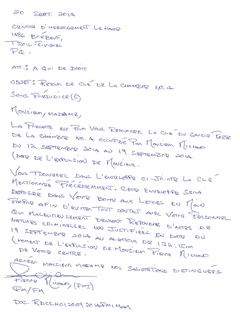 20 SEPT. 2014
CENTRE D'HÉBERGEMENT LE HAVRE
1486 BRÉBEUF,
TROIS-RIVIÈRES
P.Q.
ATT.: À QUI DE DROIT
OBJET: RETOUR DE CLÉ DE LA CHAMBRE NO. 4
SOUS PRÉJUDICE(S)
MONSIEUR/MADAME,
LA PRÉSENTE EST POUR VOUS RETOURNER LA CLÉ DU GARDE ROBE
DE LA CHAMBRE NO. 4 OCCUPÉE PAR MONSIEUR MICHAUD
DU 12 SEPTEMBRE 2014 AU 19 SEPTEMBRE 2014
(DATE DE L'EXPULSION DE MONSIEUR).
VOUS TROUVEREZ DANS L'ENVELOPPE CI-JOINTE LA CLÉ
MENTIONNÉE PRÉCÉDEMMENT. CETTE ENVELOPPE SERA
DÉPOSÉE DANS VOTRE BOITE AUX LETTRES EN MAIN
PROPRE AFIN D'ÉVITER TOUT CONTACT AVEC VOTRE PERSONNEL
QUI MALHEUREUSEMENT DEVRONT RÉPONDRE D'ACTES DE
NATURES CRIMINELLES NON JUSTIFIÉS EN DATE DU
19 SEPTEMBRE 2014 AU ALENTOUR DE 13h15m
(MOMENT DE L'EXPULSION DE MONSIEUR PIERRE MICHAUD
DE VOTRE CENTRE.
AGRÉER MONSIEUR MADAME NOS SALUTATIONS DISTINGUÉES
PIERRE MICHAUD (PM)
PM/PM